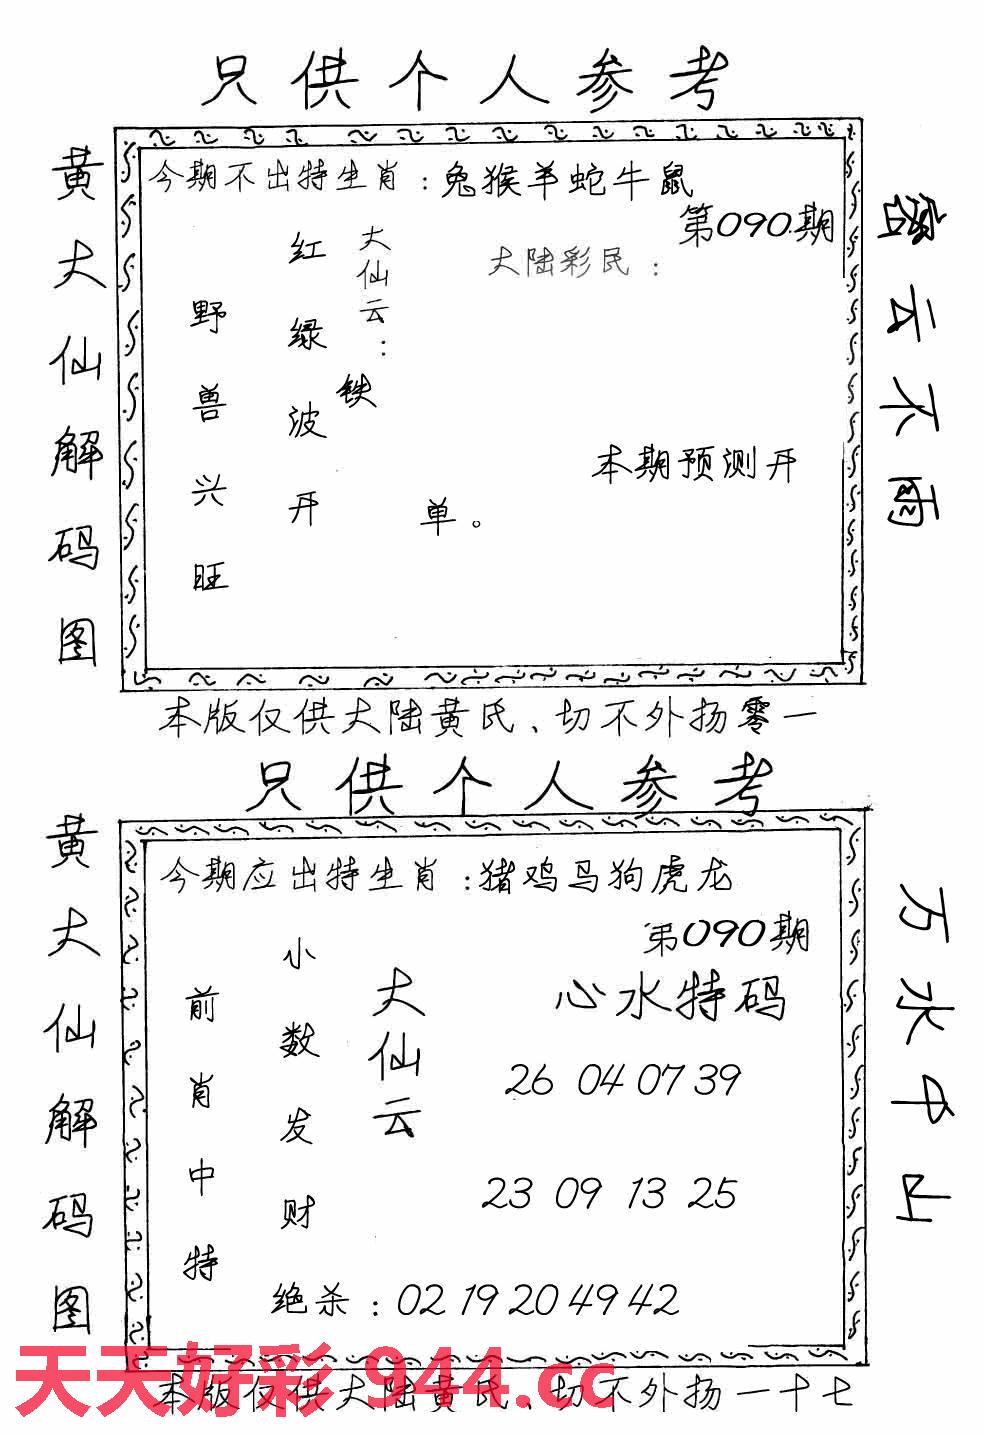 只供个人参考
黄大仙解码图
今期不出特生肖：兔猴羊蛇牛鼠
第090期
大陆彩民：
大仙云：
红绿波开
野兽兴旺
铁
单。
本期预测开
密云不雨
本版仅供大陆黄氏、切不外扬零一
只供个人参考
黄大仙解码图
今期应出特生肖：猪鸡马狗虎龙
第090期
心水特码
大仙云
小数发财
前肖中特
26 04 07 39
23 09 13 25
绝杀：02 19 20 49 42
万水中山
天天好彩 944.cc
本版仅供大陆黄氏、切不外扬一十七